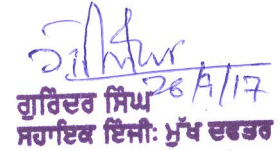 26/9/17
ਗੁਰਿੰਦਰ ਸਿੰਘ
ਸਹਾਇਕ ਇੰਜੀ: ਮੁੱਖ ਦਫਤਰ